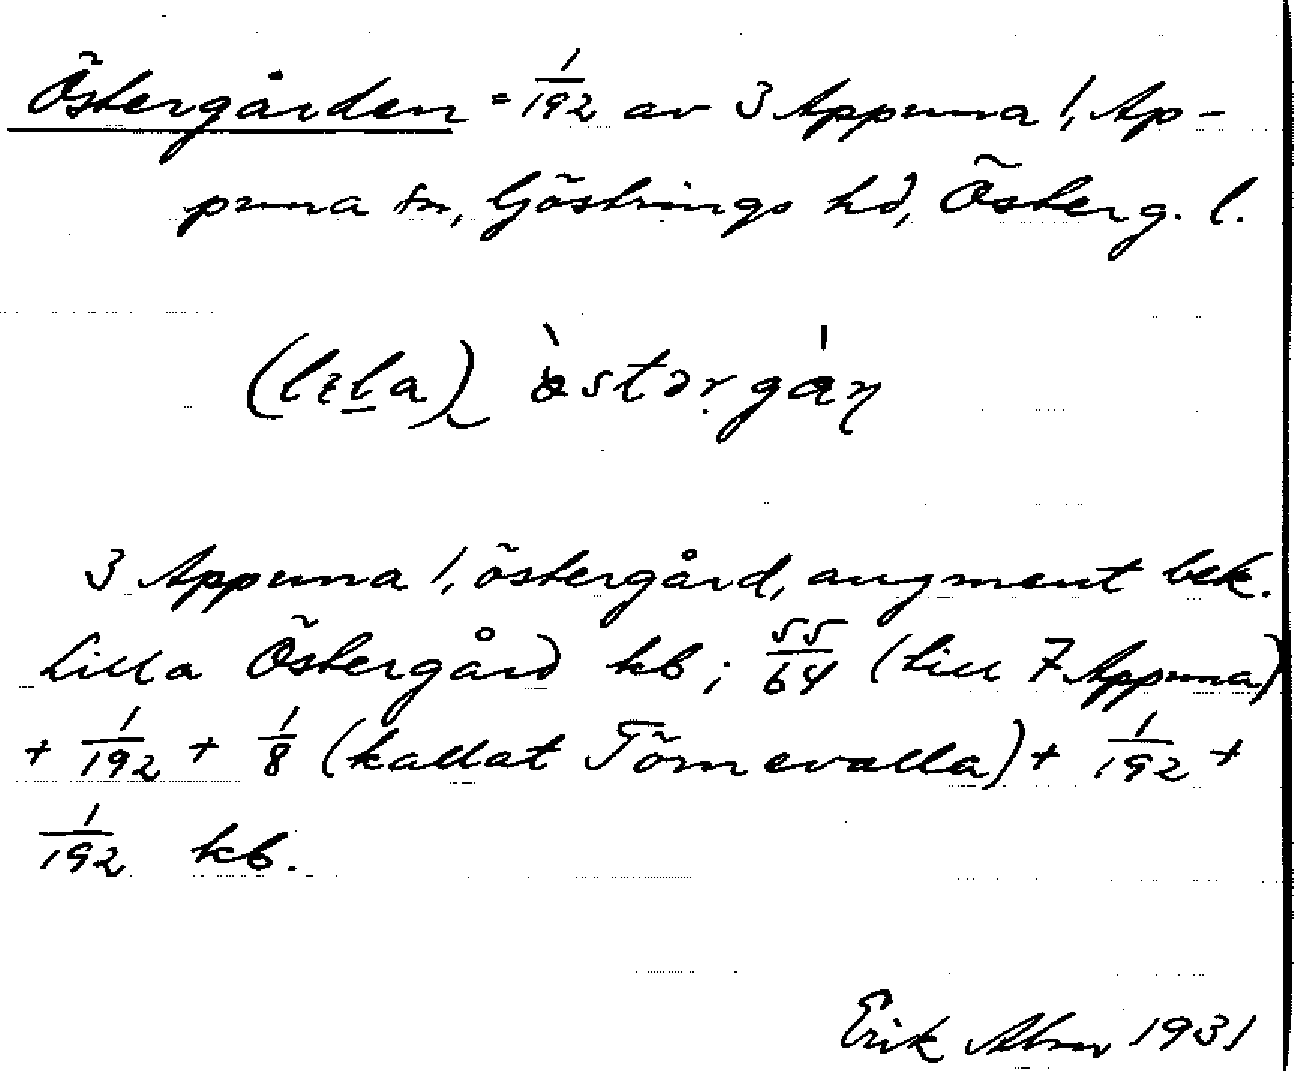 Östergården = 1/192 av 3 Appuna 1, Ap-
puna sn, Göstrings hd, Österg. l.
(lɛla) östərgån
3 Appuna 1, östergård, augment bek.
Lilla Östergård kb; 55/64 (till 7 Appuna)
+ 1/192 + 1/8 (kallat Törnevalla) + 1/192 +
1/192 kb.
Erik Abm 1931